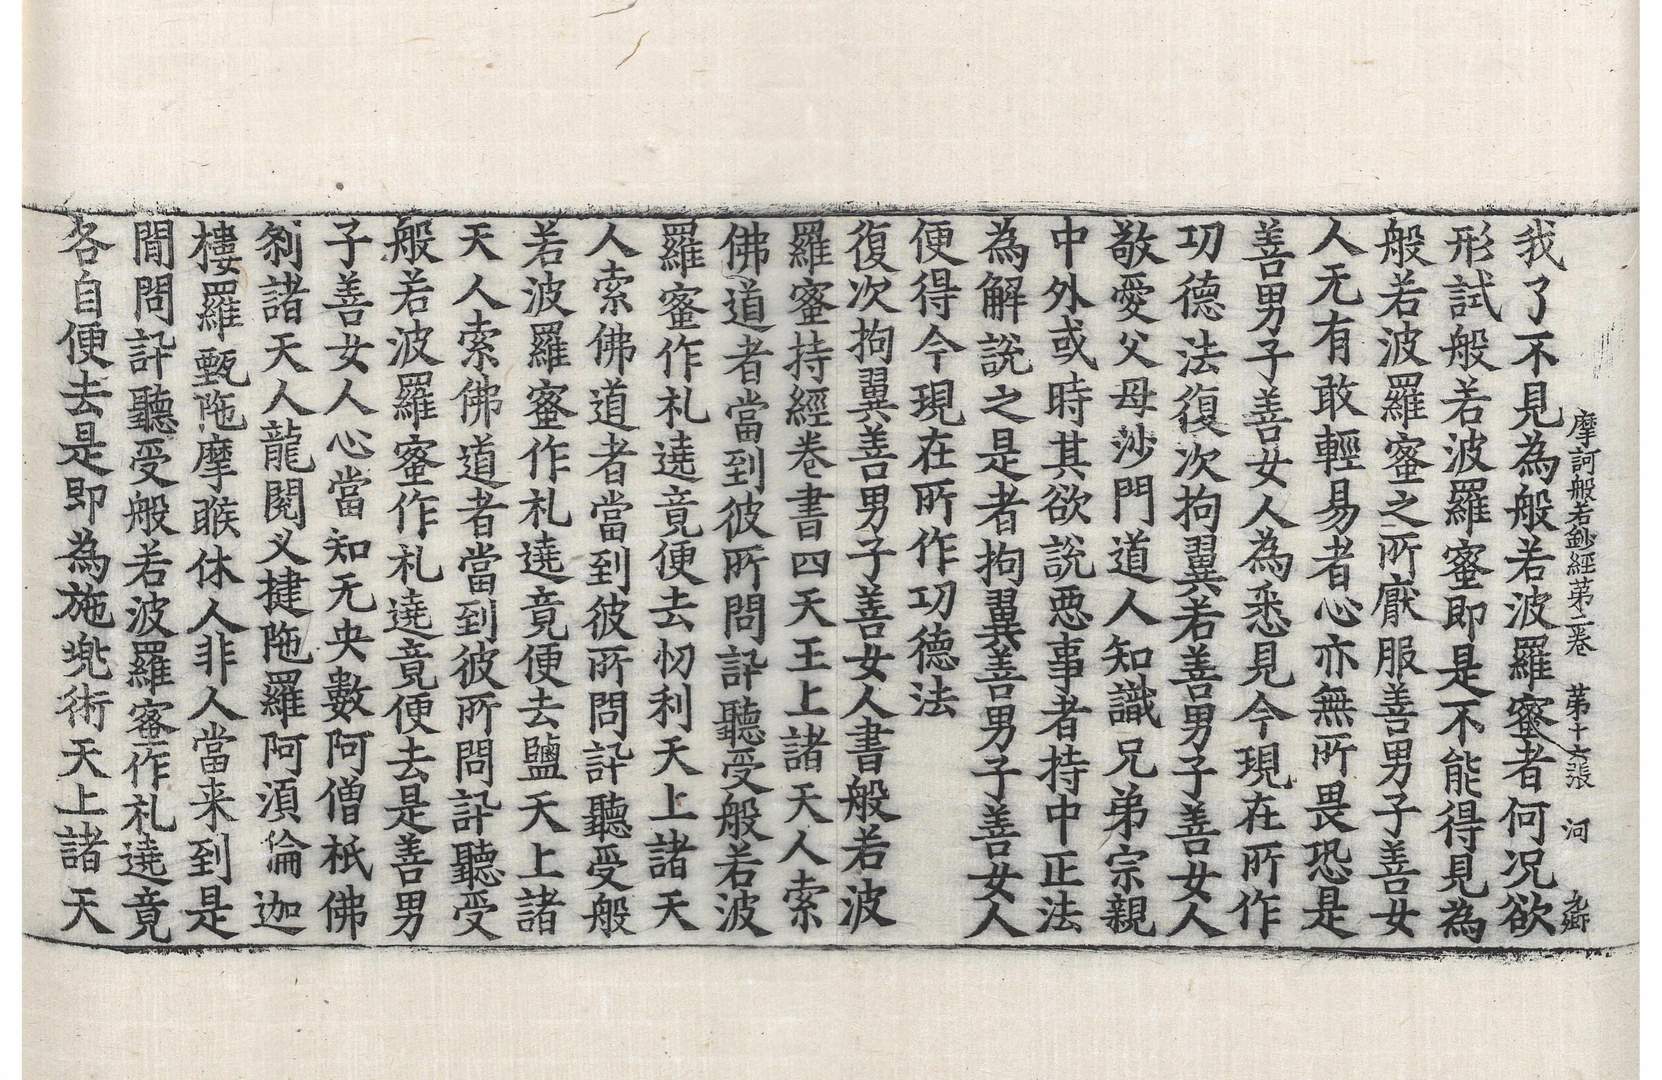 摩訶般若鈔經第二卷　第十六張　河　九卿
我了不見為般若波羅蜜者何况欲
形試般若波羅蜜即是不能得見為
般若波羅蜜之所猒服善男子善女
人无有敢輕易者心亦無所畏恐是
善男子善女人為悉見今現在所作
功德法復次拘翼若善男子善女人
敬愛父母沙門道人知識兄弟宗親
中外或時其欲說惡事者持中正法
為解說之是者拘翼善男子善女人
便得今現在所作功德法
復次拘翼善男子善女人書般若波
羅蜜持經卷書四天王上諸天人索
佛道者當到彼所問訊聽受般若波
羅蜜作礼遶竟便去忉利天上諸天
人索佛道者當到彼所問訊聽受般
若波羅蜜作礼遶竟便去鹽天上諸
天人索佛道者當到彼所問訊聽受
般若波羅蜜作礼遶竟便去是善男
子善女人心當知无央數阿僧祇佛
剎諸天人龍閱叉揵陁羅阿湏倫迦
樓羅甄陁摩睺休人非人當来到是
間問訊聽受般若波羅蜜作礼遶竟
各自便去是即為施兜術天上諸天